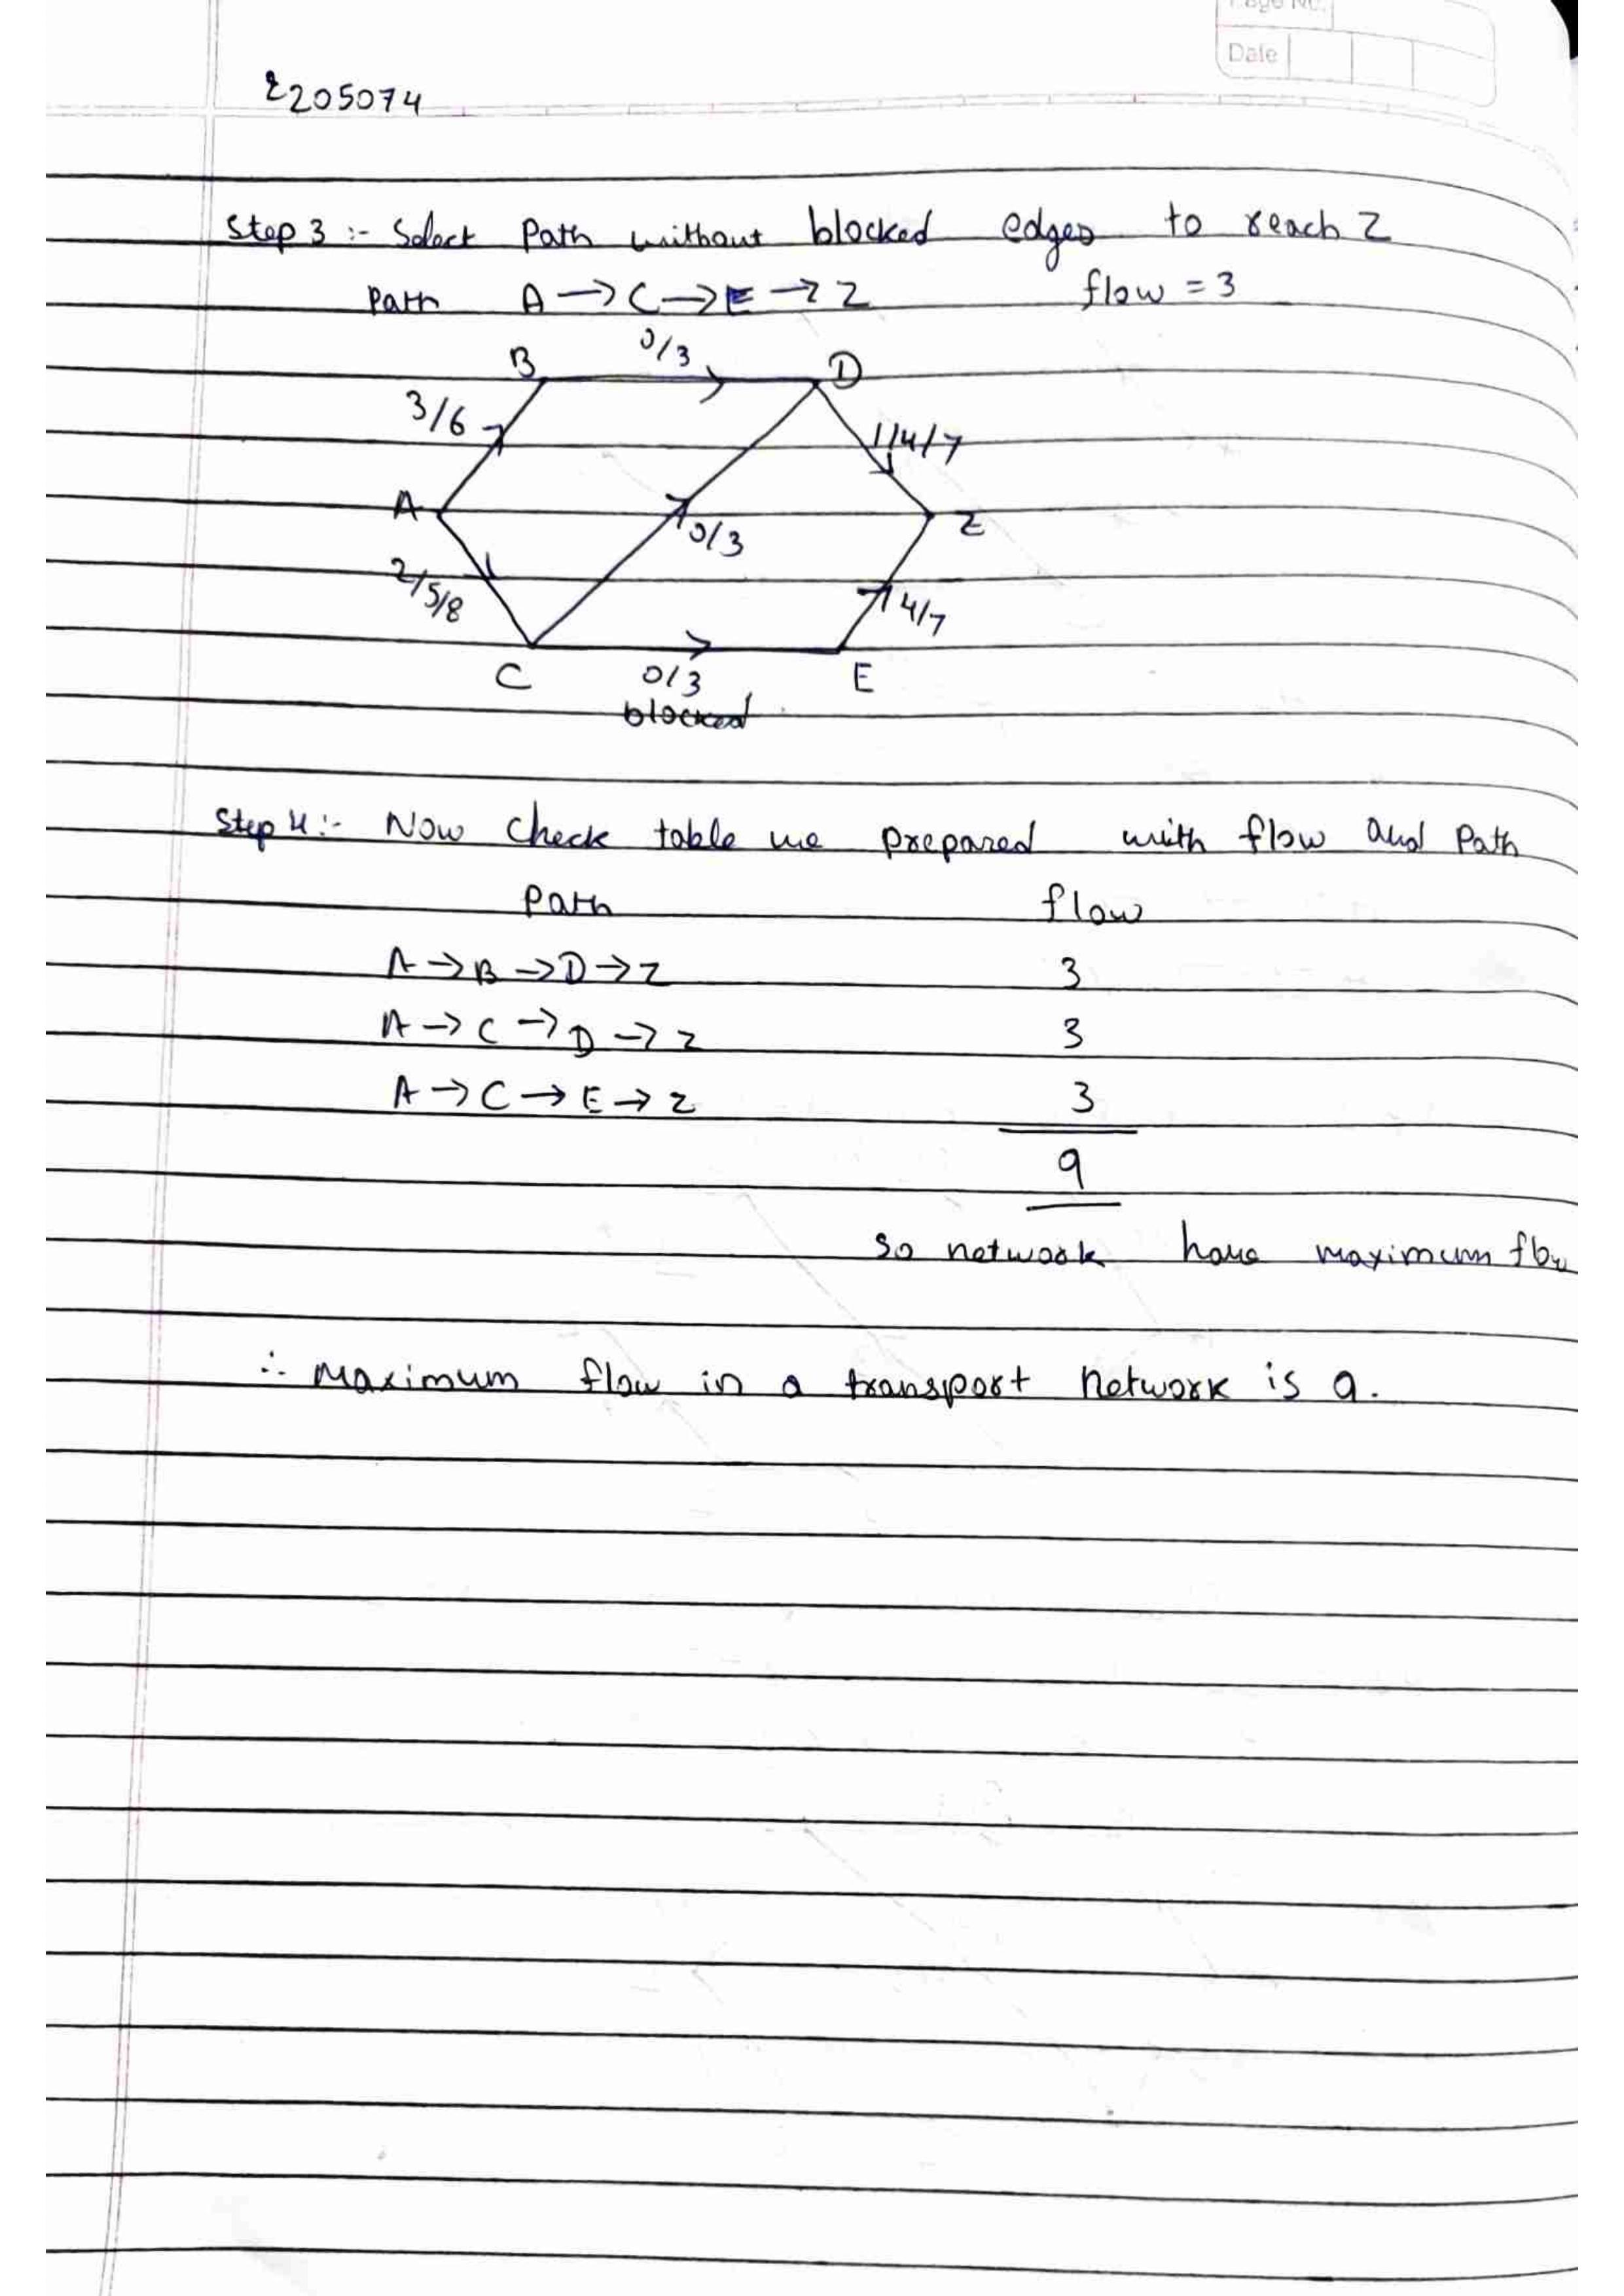 Page No.
Date
E205074
Step 3 :- Select Path without blocked edges to reach Z
Path A → C → E → Z flow = 3
B 0/3 D
3/6 1/4/7
A 0/3 Z
2/5/8 4/7
C 0/3 E
blocked
Step 4 :- Now check table we prepared with flow and Path
Path flow
A → B → D → Z 3
A → C → D → Z 3
A → C → E → Z 3
9
so network have maximum flow
∴ Maximum flow in a transport network is 9.